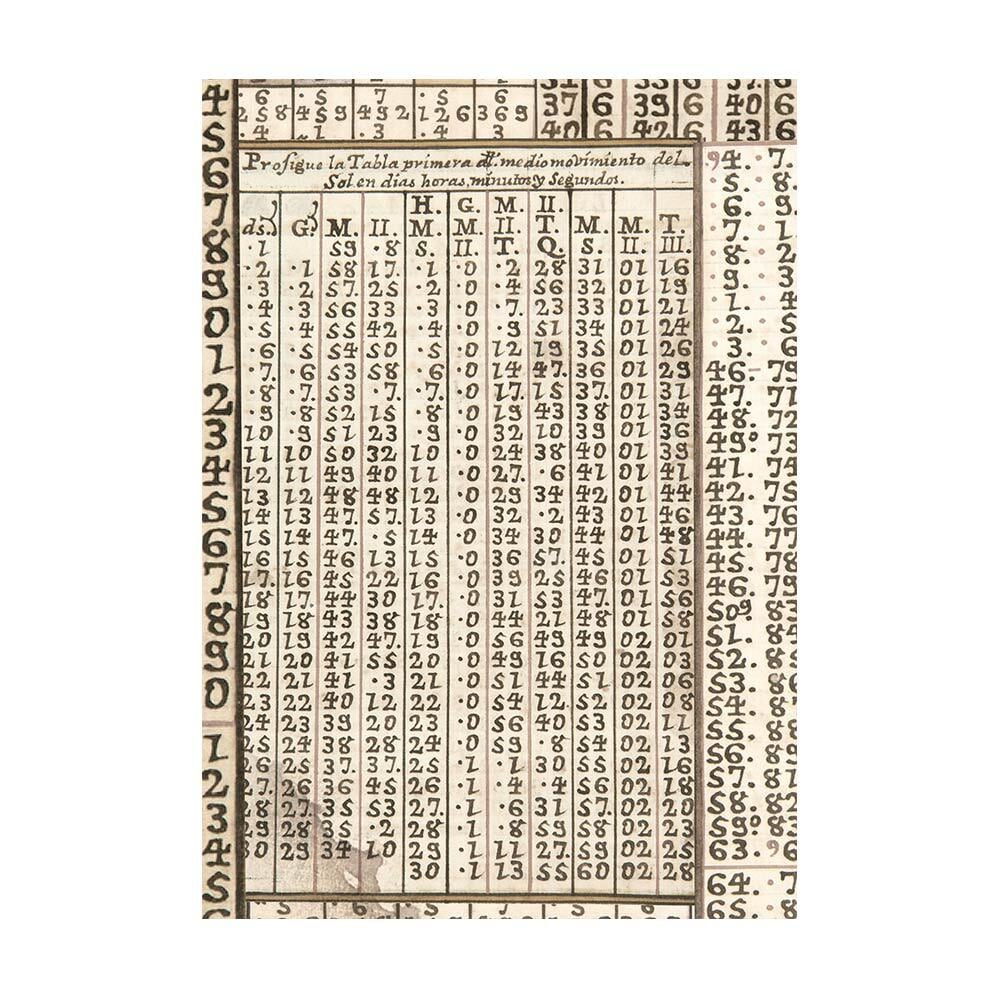 4
5
6
7
8
9
0
1
2
3
4
5
6
7
8
9
0
1
2
3
4
5
6
.6 .5 7 .5 6
258 459 492 126 369
.4 .1 .3 .4 3
37 6 39 6 40 6
40 6 42 6 43 6
Prosigue la Tabla primera dl. medio movimiento del.
Sol en dias horas, minutos y Segundos.
H. G. M. II.
ds. G. M. II. M. M. II. T. M. M. T.
.1 59 .8 S. II. T. Q. S. II. III.
.2 .1 58 17. .1 .0 .2 28 31 01 16
.3 .2 57. 25 .2 .0 .4 56 32 01 19
.4 .3 56 33 .3 .0 .7. 23 33 01 21
.5 .4 55 42 .4 .0 .9 51 34 01 24
.6 .5 54 50 .5 .0 12 19 35 01 26
.7. .6 53 58 .6 .0 14 47. 36 01 29
.8 .7. 53 .7. .7. .0 17. 15 37. 01 31
.9 .8 52 15 .8 .0 19 43 38 01 34
10 .9 51 23 .9 .0 32 10 39 01 36
11 10 50 32 10 .0 24 38 40 01 39
12 11 49 40 11 .0 27. .6 41 01 41
13 12 48 48 12 .0 29 34 42 01 44
14 13 47. 57. 13 .0 32 .2 43 01 46
15 14 47. .5 14 .0 34 30 44 01 48
16 15 46 13 15 .0 36 57. 45 01 51
17. 16 45 22 16 .0 39 25 46 01 53
18 17. 44 30 17. .0 31 53 47. 01 56
19 18 43 38 18 .0 44 21 48 01 58
20 19 42 47. 19 .0 56 49 49 02 01
21 20 41 55 20 .0 49 16 50 02 03
22 21 41 .3 21 .0 51 44 51 02 06
23 22 40 12 22 .0 54 12 52 02 08
24 23 39 20 23 .0 56 40 53 02 11
25 24 38 28 24 .0 59 .8 54 02 13
26 25 37. 37. 25 .1 .1 30 55 02 16
27. 26 36 45 26 .1 .4 .4 56 02 18
28 27. 35 53 27. .1 .6 31 57. 02 20
29 28 35 .2 28 .1 .8 59 58 02 23
30 29 34 10 29 .1 11 27. 59 02 25
30 .1 13 55 60 02 28
94. . 7.
5. . 8
6. . 9
7. . 1
8. . 2
9. . 3
1. . 4
2. . 5
3. . 6
46. 79
47. 71
48. 72
49. 73
41. 74
42. 75
43. 76
44. 77
45. 78
46. 79
509 83
51. 84
52. 85
53. 86
54. 87
55. 88
56. 89
57. 81
58. 82
599 83
63. 96
64. . 7
65. . 8